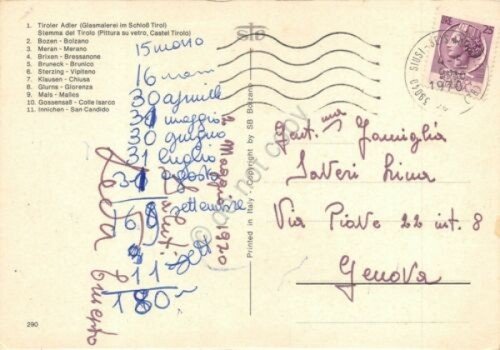 1. Tiroler Adler (Glasmalerei im Schloß Tirol)
Stemma del Tirolo (Pittura su vetro, Castel Tirolo)
2. Bozen - Bolzano
3. Meran - Merano
4. Brixen - Bressanone
5. Bruneck - Brunico
6. Sterzing - Vipiteno
7. Klausen - Chiusa
8. Glurns - Glorenza
9. Mals - Malles
10. Gossensaß - Colle Isarco
11. Innichen - San Candido
15 marzo
16
30 aprile
31 maggio
30 giugno
31 luglio
31 agosto
settembre
11 sett
180
Maggio 1970
Saluti
Printed in Italy - Copyright by SB Bolzano
39040 SIUSI
1970
Gent.ma Famiglia
Saveri Lina
Via Piave 22 int. 8
Genova
290
do not copy